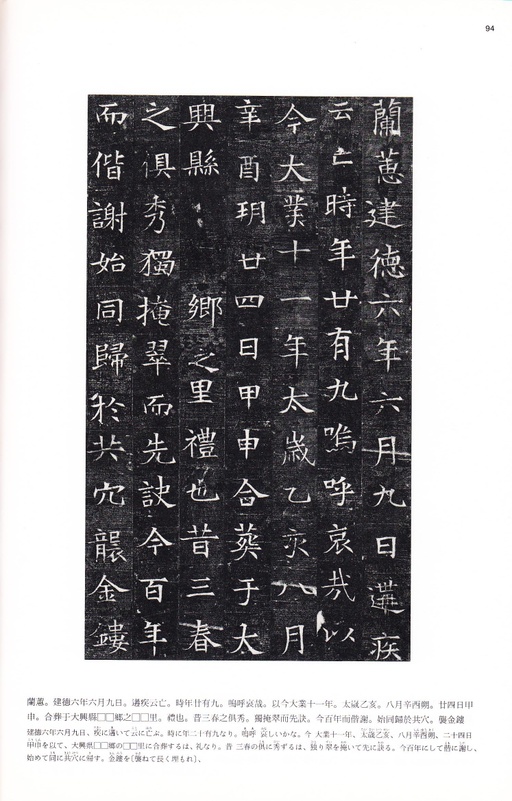 94
蘭蕙建德六年六月九日遘疾
云亡時年廿有九嗚呼哀哉以
今大業十一年太歲乙亥八月
辛酉朔廿四日甲申合葬于大
興縣 鄉之里禮也昔三春
之俱秀獨掩翠而先訣今百年
而偕謝始同歸於共穴龔金鏤
蘭蕙。建德六年六月九日。遘疾云亡。時年廿有九。嗚呼哀哉。以今大業十一年。太歲乙亥。八月辛酉朔。廿四日甲
申。合葬于大興縣□□鄉之□□里。禮也。昔三春之俱秀。獨掩翠而先訣。今百年而偕謝。始同歸於共穴。龔金鏤
建德六年六月九日、疾に遘いて云に亡ぶ。時に年二十有九なり。嗚呼 哀しいかな。今 大業十一年、太歲乙亥、八月辛酉朔、二十四日
甲申を以て、大興県□□鄉の□□里に合葬するは、礼なり。昔 三春の俱に秀ずるは、独り翠を掩いて先に訣る。今百年にして偕に謝し、
始めて同に共穴に帰す。金鏤を〔龔ねて長く埋もれ〕、